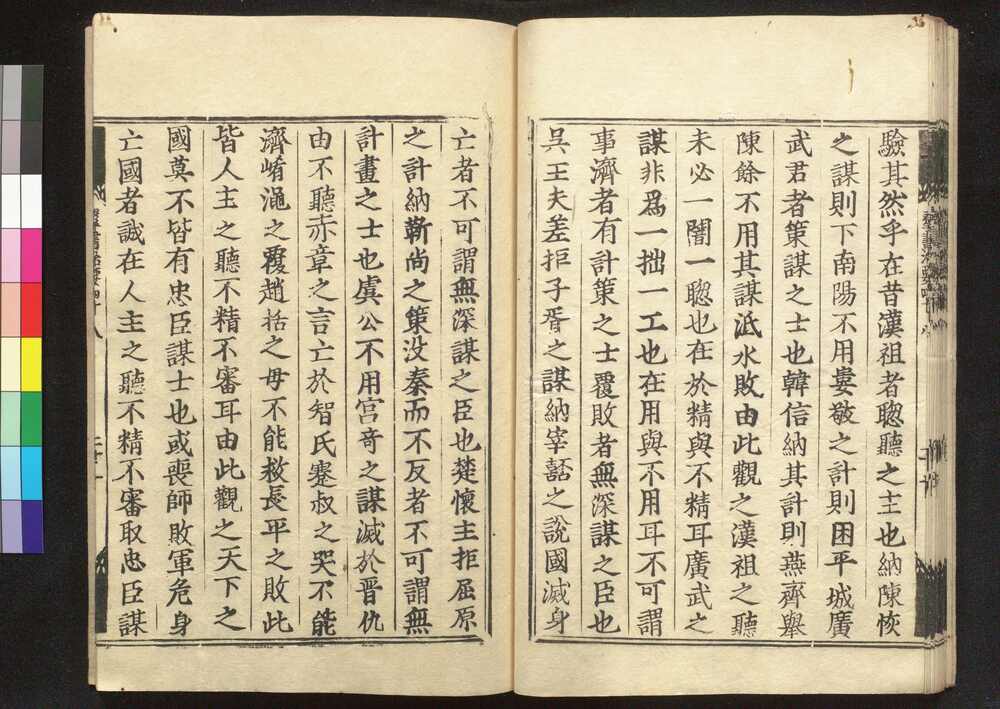 驗其然乎在昔漢祖者聦聽之主也納陳恢
之謀則下南陽不用婁敬之計則困平城廣
武君者策謀之士也韓信納其計則燕齊舉
陳餘不用其謀泜水敗由此觀之漢祖之聽
未必一闇一聦也在於精與不精耳廣武之
謀非爲一拙一工也在用與不用耳不可謂
事濟者有計策之士覆敗者無深謀之臣也
吳王夫差拒子胥之謀納宰嚭之說國滅身
亡者不可謂無深謀之臣也楚懷主拒屈原
之計納靳尚之策没秦而不反者不可謂無
計畫之士也虞公不用宫奇之謀滅於晋仇
由不聽赤章之言亡於智氏蹇叔之哭不能
濟崤澠之覆趙括之母不能救長平之敗此
皆人主之聽不精不審耳由此觀之天下之
國莫不皆有忠臣謀士也或喪師敗軍危身
亡國者誠在人主之聽不精不審取忠臣謀
羣書治要四十八